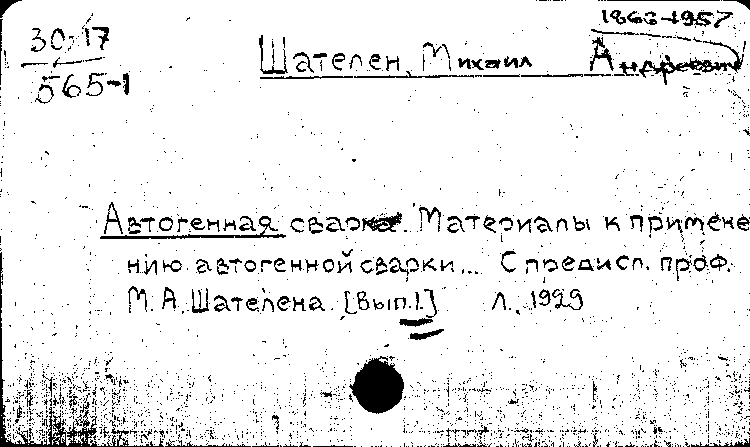 1863-1957
30-17
565-1
Шателен, Михаил Андреевич
Автогенная сварка. Материалы к примене
нию автогенной сварки... С предисл. проф.
М. А. Шателена. [Вып.1.] Л., 1929